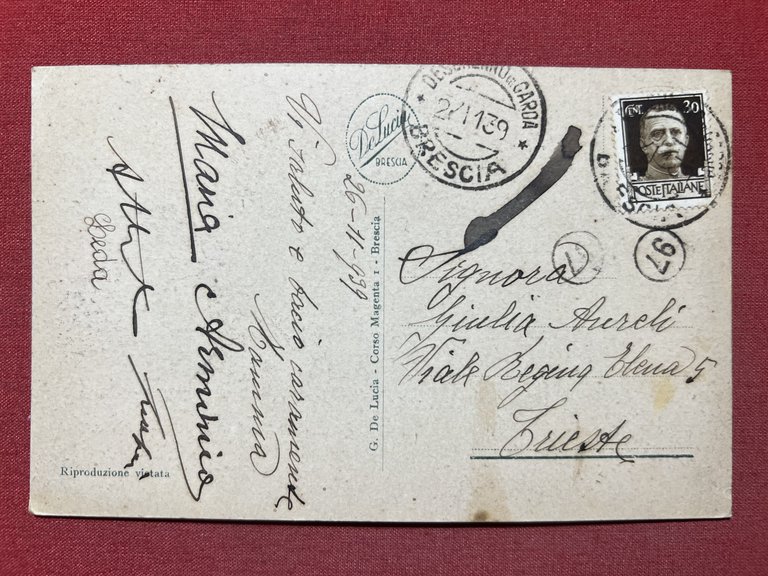 DESENZANO DEL GARDA
BRESCIA
CENT. 30
POSTE ITALIANE
97
De Lucia
BRESCIA
26-11-939
Vi saluto e bacio caramente
Mamma
Maria
Leda
G. De Lucia - Corso Magenta 1 - Brescia
Riproduzione vietata
Signora
Giulia Aureli
Viale Regina Elena 5
Trieste